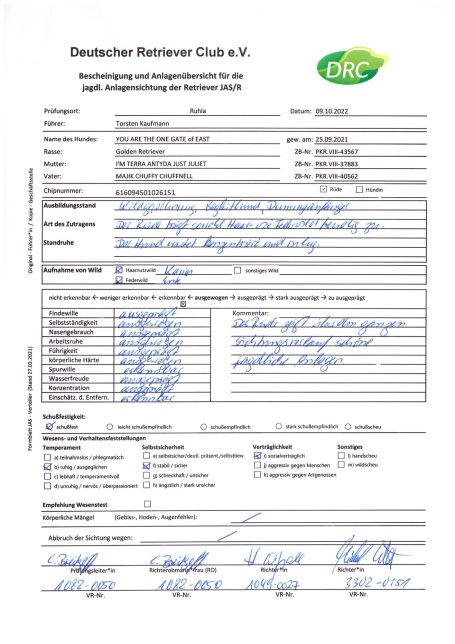 Deutscher Retriever Club e.V.
DRC
Bescheinigung und Anlagenübersicht für die
jagdl. Anlagensichtung der Retriever JAS/R
Prüfungsort: Ruhla Datum: 09.10.2022
Führer: Torsten Kaufmann
Name des Hundes: YOU ARE THE ONE GATE of EAST gew. am: 25.09.2021
Rasse: Golden Retriever ZB-Nr. PKR.VIII-43567
Mutter: I'M TERRA ANTYDA JUST JULIET ZB-Nr. PKR.VIII-37883
Vater: MAJIK CHUFFY CHUFFNELL ZB-Nr. PKR.VIII-40562
Chipnummer: 616094501026151 Rüde Hündin
Ausbildungsstand
Art des Zutragens Der Rüde trägt sowohl Haar- wie Federwild freudig zu.
Standruhe Der Hund wartet konzentriert und ruhig.
Aufnahme von Wild Haarnutzwild Kanin sonstiges Wild
Federwild Ente
nicht erkennbar ← weniger erkennbar ← erkennbar ← ausgewogen → ausgeprägt → stark ausgeprägt → zu ausgeprägt
Findewille ausgeprägt
Kommentar:
Selbstständigkeit ausgewogen
Nasengebrauch ausgeprägt
Arbeitsruhe ausgewogen
Führigkeit ausgewogen
körperliche Härte ausgewogen
Spurwille erkennbar
Wasserfreude ausgeprägt
Konzentration ausgeprägt
Einschätz. d. Entfern. erkennbar
Der Rüde zeigt über den ganzen
Sichtungsverlauf schöne
jagdliche Anlagen.
Schußfestigkeit:
schußfest leicht schußempfindlich schußempfindlich stark schußempfindlich schußscheu
Wesens- und Verhaltensfeststellungen
Temperament Selbstsicherheit Verträglichkeit Sonstiges
a) teilnahmslos / phlegmatisch e) selbstsicher/deutl. präsent./selbstbew. i) sozialverträglich l) handscheu
b) ruhig / ausgeglichen f) stabil / sicher j) aggressiv gegen Menschen m) wildscheu
c) lebhaft / temperamentvoll g) schreckhaft / unsicher k) aggressiv gegen Artgenossen
d) unruhig / nervös / überpassioniert h) ängstlich / stark unsicher
Empfehlung Wesenstest
Körperliche Mängel (Gebiss-, Hoden-, Augenfehler):
Abbruch der Sichtung wegen:
Prüfungsleiter*in Richterobmann*frau (RO) Richter*in Richter*in
1082-0050 1082-0050 1049-0027 3302-0151
VR-Nr. VR-Nr. VR-Nr. VR-Nr.
Formblatt JAS - Verteiler (Stand 27.03.2021) Original - Führer*in / Kopie - Geschäftsstelle